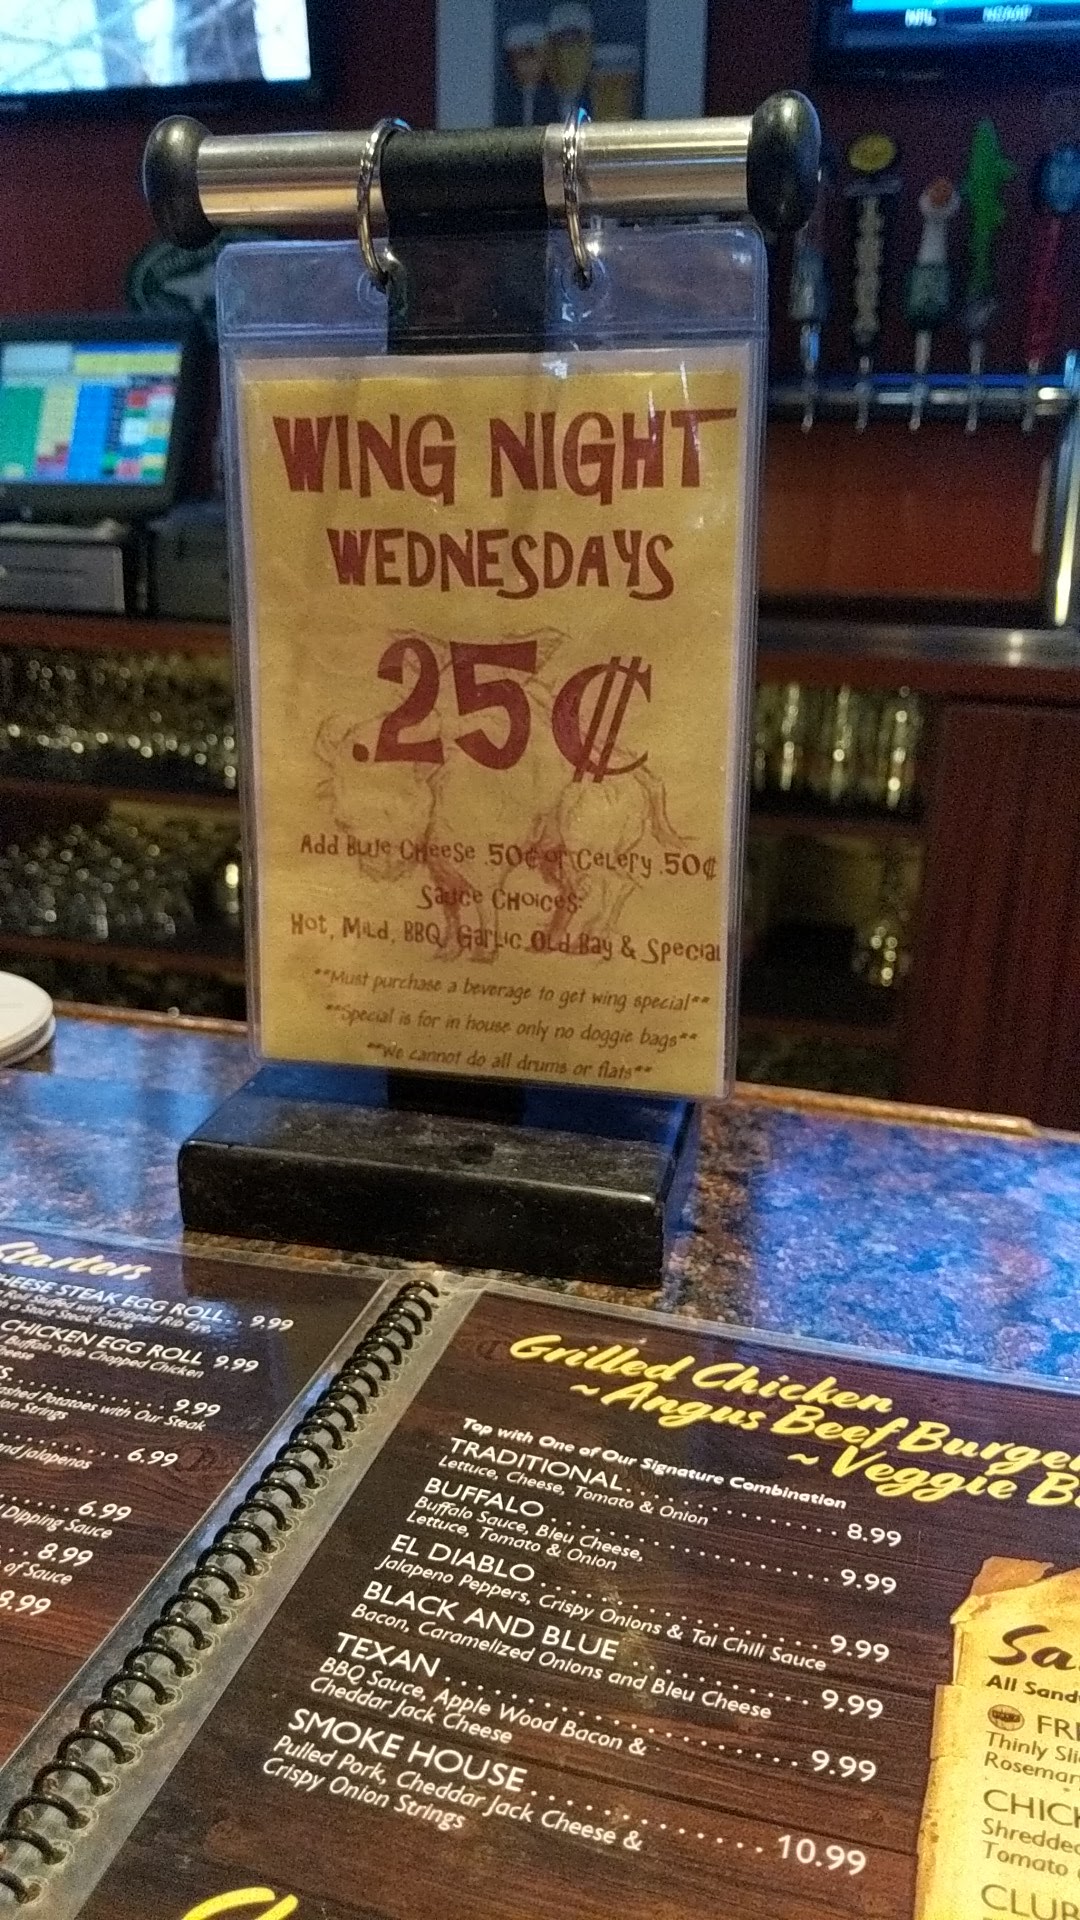 WING NIGHT
WEDNESDAYS
.25¢
Add Blue Cheese .50¢ or Celery .50¢
Sauce Choices:
Hot, Mild, BBQ, Garlic Old Bay & Special
**Must purchase a beverage to get wing special**
**Special is for in house only no doggie bags**
**We cannot do all drums or flats**
Starters
CHEESE STEAK EGG ROLL.. 9.99
Roll Stuffed with Chipped Rib Eye,
a Stout Steak Sauce
CHICKEN EGG ROLL 9.99
Buffalo Style Chopped Chicken
Cheese
9.99
Mashed Potatoes with Our Steak
Strings
6.99
and jalapenos
6.99
Dipping Sauce
8.99
of Sauce
8.99
Grilled Chicken
~Angus Beef Burger
~Veggie B
Top with One of Our Signature Combination
TRADITIONAL.................... 8.99
Lettuce, Cheese, Tomato & Onion
BUFFALO.................... 9.99
Buffalo Sauce, Bleu Cheese,
Lettuce, Tomato & Onion
EL DIABLO.................... 9.99
Jalapeno Peppers, Crispy Onions & Tai Chili Sauce
BLACK AND BLUE............ 9.99
Bacon, Caramelized Onions and Bleu Cheese
TEXAN.................... 9.99
BBQ Sauce, Apple Wood Bacon &
Cheddar Jack Cheese
SMOKE HOUSE............ 10.99
Pulled Pork, Cheddar Jack Cheese &
Crispy Onion Strings
Sa
All Sand
FRE
Thinly Sli
Rosemar
CHICK
Shredded
Tomato
CLUB